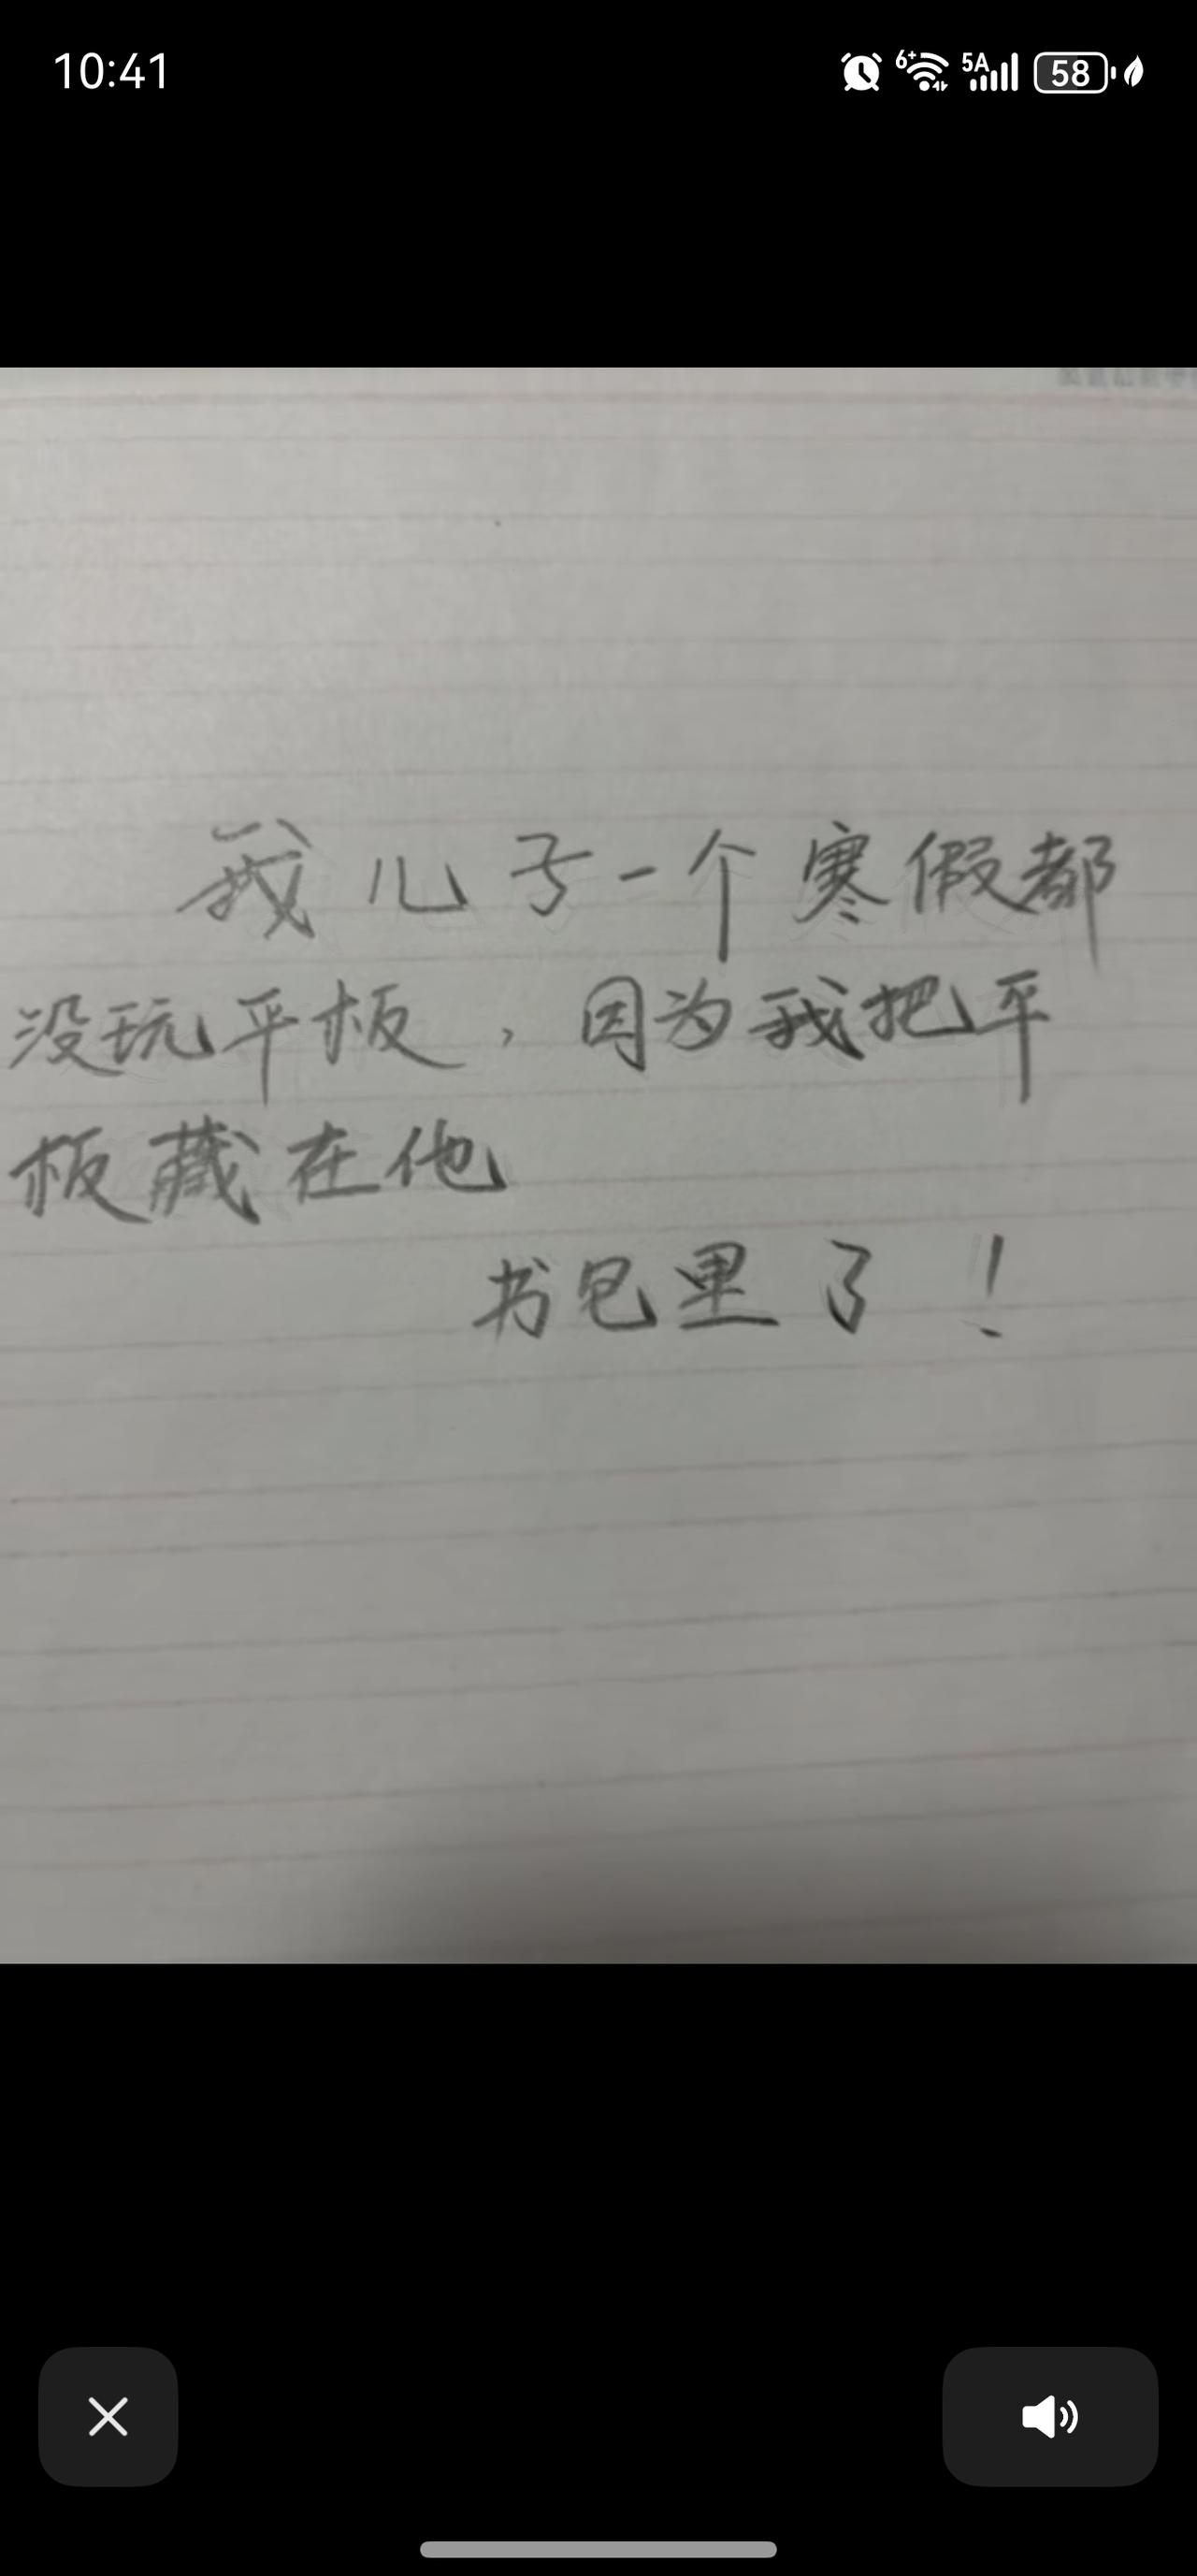 10:41 6+ 5A 58
我儿子一个寒假都
没玩平板，因为我把平
板藏在他
书包里了！